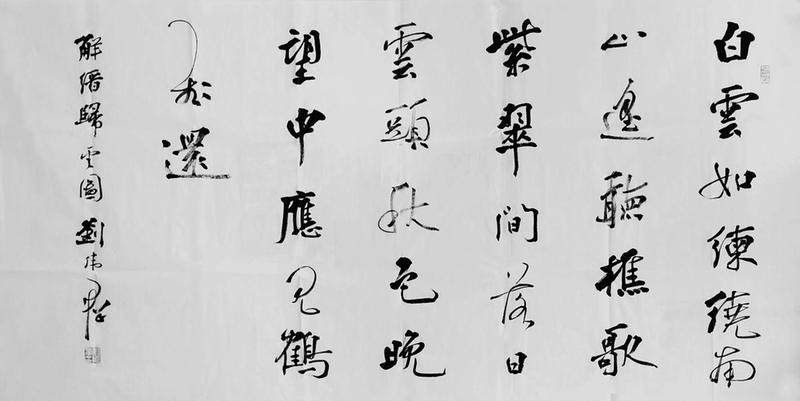 白雲如練繞南
山遙聽樵歌
紫翠間落日
雲頭秋色晚
望中應見鶴
飛還
解縉歸雲圖 劉偉